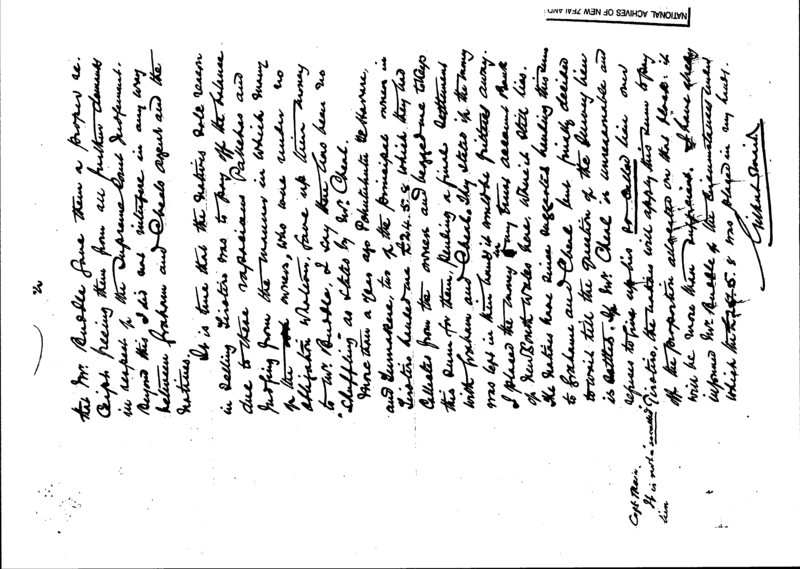 2/
that Mr. Buddle gave them a proper re-
ceipt freeing them from all further claims
in respect of the Supreme Court Judgment.
Beyond this I did not intrigue in any way
between Graham and Cheal's agent and the
natives.
It is true that the natives sole reason
in selling Tiratu was to pay off the balance
due to these rapacious Pakehas and
judging from the manner in which many
of the owners, who were under no
obligation whatever, gave up their money
to Mr. Buddle, I say there has been no
"Shuffling" as stated by Mr. Cheal.
More than a year ago
and two of the principal owners in
Tiratu handed me £24.5.8 which they had
collected from the owners and begged me to keep
this sum for them, pending a final settlement
with Graham and Cheal. They stated if the money
was left in their hands it would be frittered away.
I placed the money in my trust account Bank
of New South Wales here, where it still lies.
The natives have since suggested handing this sum
to Grahame and Cheal but finally decided
to wait till the question of the Survey lien
is settled. If Mr. Cheal is unreasonable and
refuses to give up his so called lien over
Tiratu, the natives will apply this sum to pay
off the proportion allocated on this block: it
will be more than sufficient. I have already
informed Mr. Buddle of the circumstances under
which the £24.5.8 was placed in my hands.
Gilbert
Capt.
It is not a "so called"
lien
NATIONAL ARCHIVES OF NEW ZEALAND